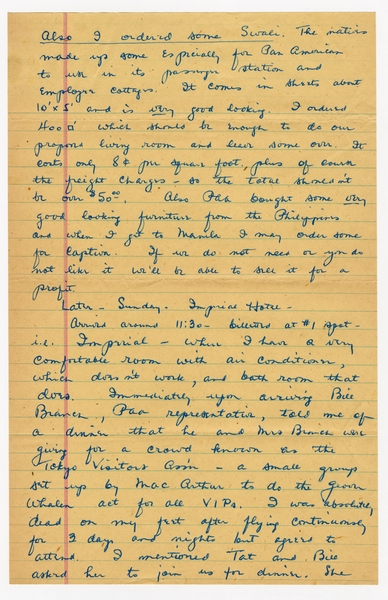 Also I ordered some Swali. The natives
made up some especially for Pan American
to use in its passenger station and
Employee cottages. It comes in sheets about
10' x 5' and is very good looking. I ordered
400 which should be enough to do our
proposed living room and leave some over. It
costs only 8¢ per square foot, plus of course
the freight charges - so the total shouldn't
be over $50.00. Also PAA bought some very
good looking furniture from the Philippines
and when I get to Manila I may order some
for Captiva. If we do not need or you do
not like it we'll be able to sell it for a
profit.
Later - Sunday. Imperial Hotel -
Arrived around 11:30 - billeted at #1 spot -
i.e. Imperial - where I have a very
comfortable room with air conditioner,
which doesn't work, and bath room that
does. Immediately upon arriving Bill
Branch, PAA representative, told me of
a dinner that he and Mrs Branch were
giving for a crowd known as the
"Tokyo Visitors Assn - a small group
set up by MacArthur to do the Grover
Whalen act for all VIPs. I was absolutely
dead on my feet after flying continuously
for 3 days and nights but agreed to
attend. I mentioned Tat and Bill
asked her to join us for dinner. She